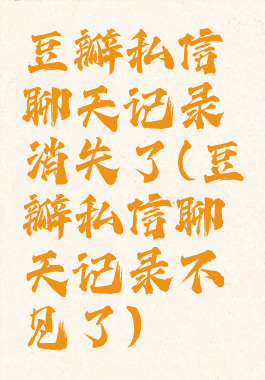 豆瓣私信
聊天记录
消失了(豆
瓣私信聊
天记录不
见了)